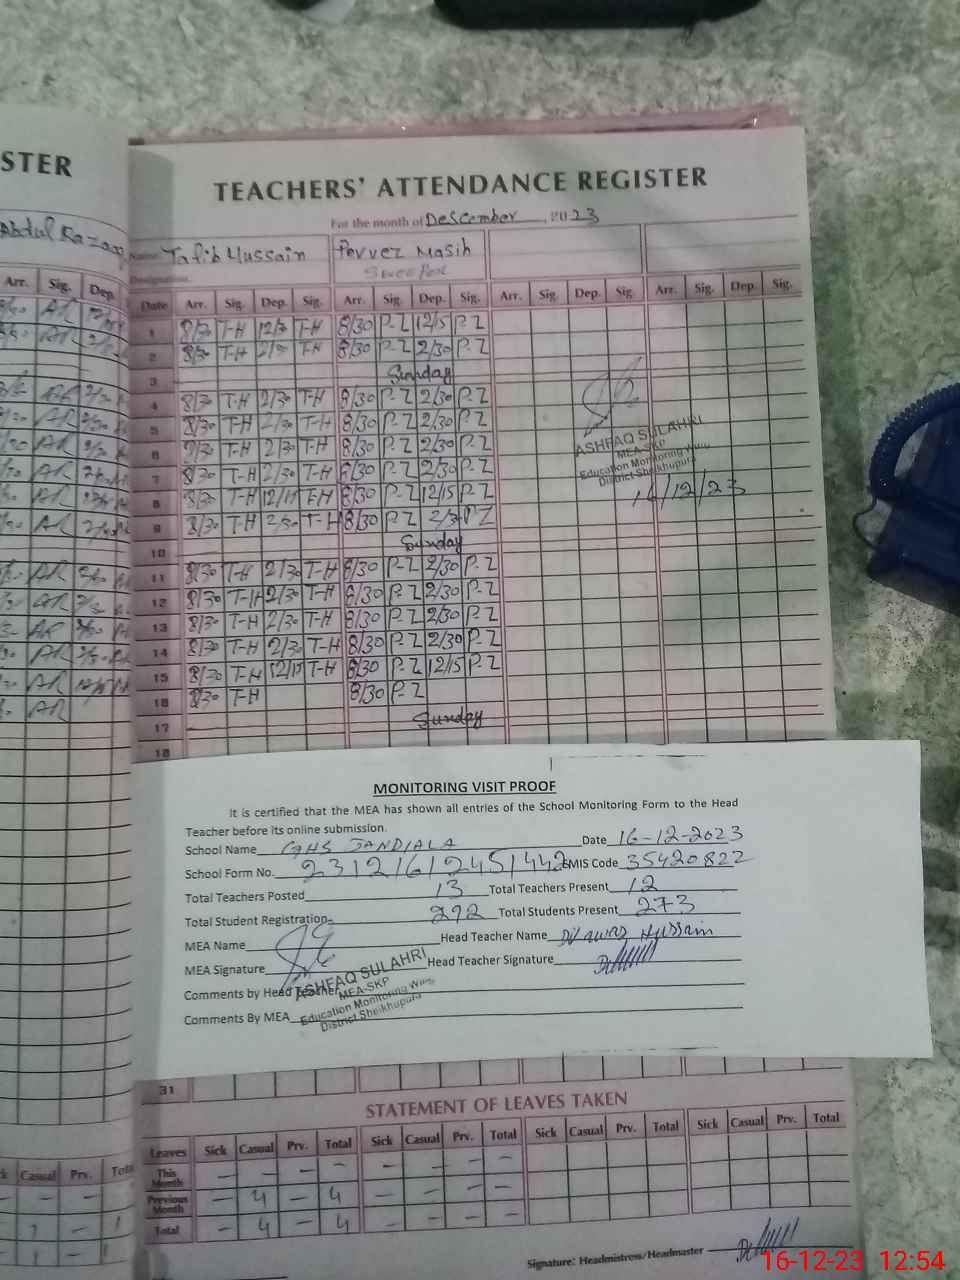 STER
TEACHERS' ATTENDANCE REGISTER
For the month of Descember, 2023
Abdul Razaaq
Name: Talib Hussain Pervez Masih
Designation:
Arr. Sig. Dep. Date Arr. Sig. Dep. Sig. Arr. Sig. Dep. Sig. Arr. Sig. Dep. Sig. Arr. Sig. Dep. Sig.
1 8/30 T-H 12/30 T-H 8/30 P-Z 12/15 P-Z
2 8/30 T-H 2/30 T-H 8/30 P-Z 2/30 P-Z
3 Sunday
4 8/30 T-H 2/30 T-H 8/30 P-Z 2/30 P-Z
5 8/30 T-H 2/30 T-H 8/30 P-Z 2/30 P-Z
6 8/30 T-H 2/30 T-H 8/30 P-Z 2/30 P-Z
7 8/30 T-H 2/30 T-H 8/30 P-Z 2/30 P-Z
8 8/30 T-H 12/15 T-H 8/30 P-Z 12/15 P-Z
9 8/30 T-H 2/30 T-H 8/30 P-Z 2/30 P-Z
10 Sunday
11 8/30 T-H 2/30 T-H 8/30 P-Z 2/30 P-Z
12 8/30 T-H 2/30 T-H 8/30 P-Z 2/30 P-Z
13 8/30 T-H 2/30 T-H 8/30 P-Z 2/30 P-Z
14 8/30 T-H 2/30 T-H 8/30 P-Z 2/30 P-Z
15 8/30 T-H 12/15 T-H 8/30 P-Z 12/15 P-Z
16 8/30 T-H 8/30 P-Z
17 Sunday
18
ASHFAQ SULAHRI
MEA-SKP
Education Monitoring Wing
District Sheikhupura
16/12/23
MONITORING VISIT PROOF
It is certified that the MEA has shown all entries of the School Monitoring Form to the Head
Teacher before its online submission.
School Name GHS JANDIALA Date 16-12-2023
School Form No. 23121612451442 EMIS Code 35420822
Total Teachers Posted 13 Total Teachers Present 12
Total Student Registration 292 Total Students Present 273
MEA Name Head Teacher Name Dilawar Hussain
MEA Signature Head Teacher Signature
Comments by Head Teacher
Comments By MEA
ASHFAQ SULAHRI
MEA-SKP
Education Monitoring Wing
District Sheikhupura
31
STATEMENT OF LEAVES TAKEN
Casual Prv. Total Leaves Sick Casual Prv. Total Sick Casual Prv. Total Sick Casual Prv. Total Sick Casual Prv. Total
This Month - - - - - - - -
Previous Month - 4 - 4 - - - -
Total - 4 - 4 - - - -
Signature: Headmistress/Headmaster
16-12-23 12:54